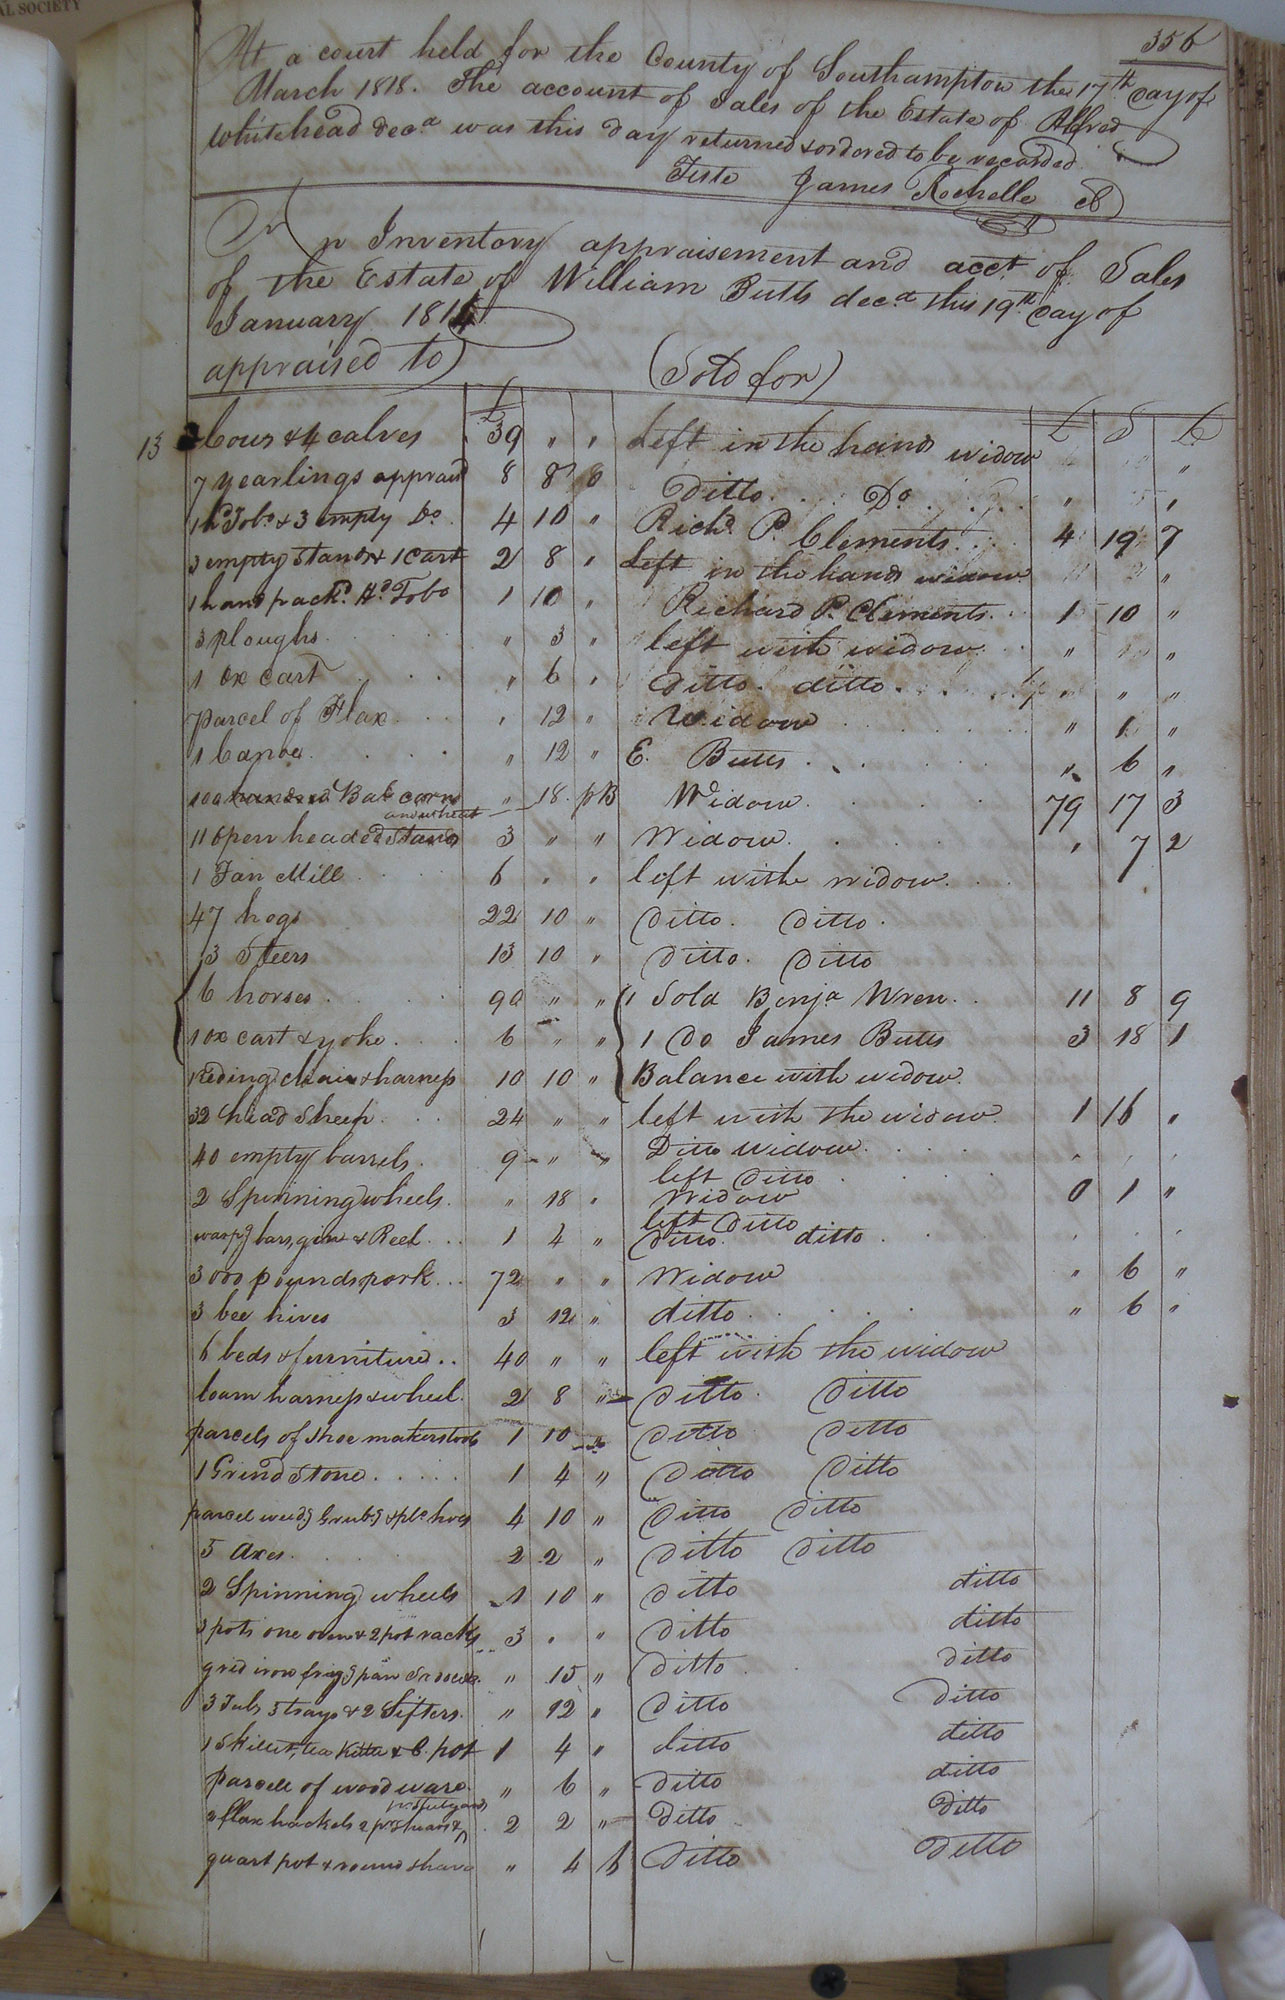 AL SOCIETY
356
At a court held for the County of Southampton the 17th day of
March 1818. The account of Sales of the Estate of Alfred
Whitehead decd was this day returned & ordered to be recorded
Teste James Rochelle
An Inventory appraisement and acct of Sales
of the Estate of William Butts decd this 19th day of
January 1814
appraised to) (Sold for)
£ £ S
13 Cows & 4 calves 39 " " Left in the hand widow "
7 yearlings appraisd 8 8 6 Ditto Do " "
1 hd Tobo & 3 empty Do 4 10 " Richd P. Clements 4 19 7
3 empty Stands & 1 Cart 2 8 " Left in the hands widow "
1 hand packd Hd Tobo 1 10 " Richard P. Clements 1 10 "
3 ploughs " 3 " left with widow " "
1 Ox cart " 6 " Ditto ditto " " "
parcel of Flax " 12 " Widow " 1 "
1 Canoe " 12 " E. Butts " 6 "
100 Bab corn " 18 pB Widow 79 17 3
and wheat
11 Open headed Stands 3 " " Widow " 7 2
1 Fan Mill 6 " " left withe widow
47 hogs 22 10 " Ditto Ditto
3 Steers 13 10 " Ditto Ditto
6 horses 90 " " 1 Sold Benja Wren 11 8 9
1 ox cart & yoke 6 " " 1 Do James Butts 3 18 1
1 Reding chair & harness 10 10 " Balance with widow
32 head Sheep 24 " " left with the widow 1 16 "
40 empty barrels 9 " " Ditto widow
left Ditto
2 Spinning wheels " 18 " Widow 0 1 "
left Ditto
warpg bars, gin & Reel 1 4 " Ditto ditto
3000 pounds pork 72 " " Widow " 6 "
3 bee hives 3 12 " ditto " 6 "
6 beds & furniture 40 " " left with the widow
loam harness & wheel 2 8 " Ditto Ditto
parcels of Shoe makers tools 1 10 Ditto Ditto
1 Grind Stone 1 4 " Ditto Ditto
parcel weedg Grubg & ple hoes 4 10 " Ditto Ditto
5 Axes 2 2 " Ditto Ditto
2 Spinning wheels 1 10 " Ditto ditto
3 pots one oven & 2 pot racks 3 " " Ditto ditto
grid iron frigg pan " 15 " Ditto ditto
3 Tubs 3 trays & 2 Sifters " 12 " Ditto Ditto
1 Skillet, tea Kittle & C. pot 1 4 " ditto ditto
parcell of wood ware " 6 " Ditto ditto
pr Stilyards
2 flax hackels 2 pr Shears & 2 2 " Ditto Ditto
quart pot & round shave " 4 6 Ditto Ditto